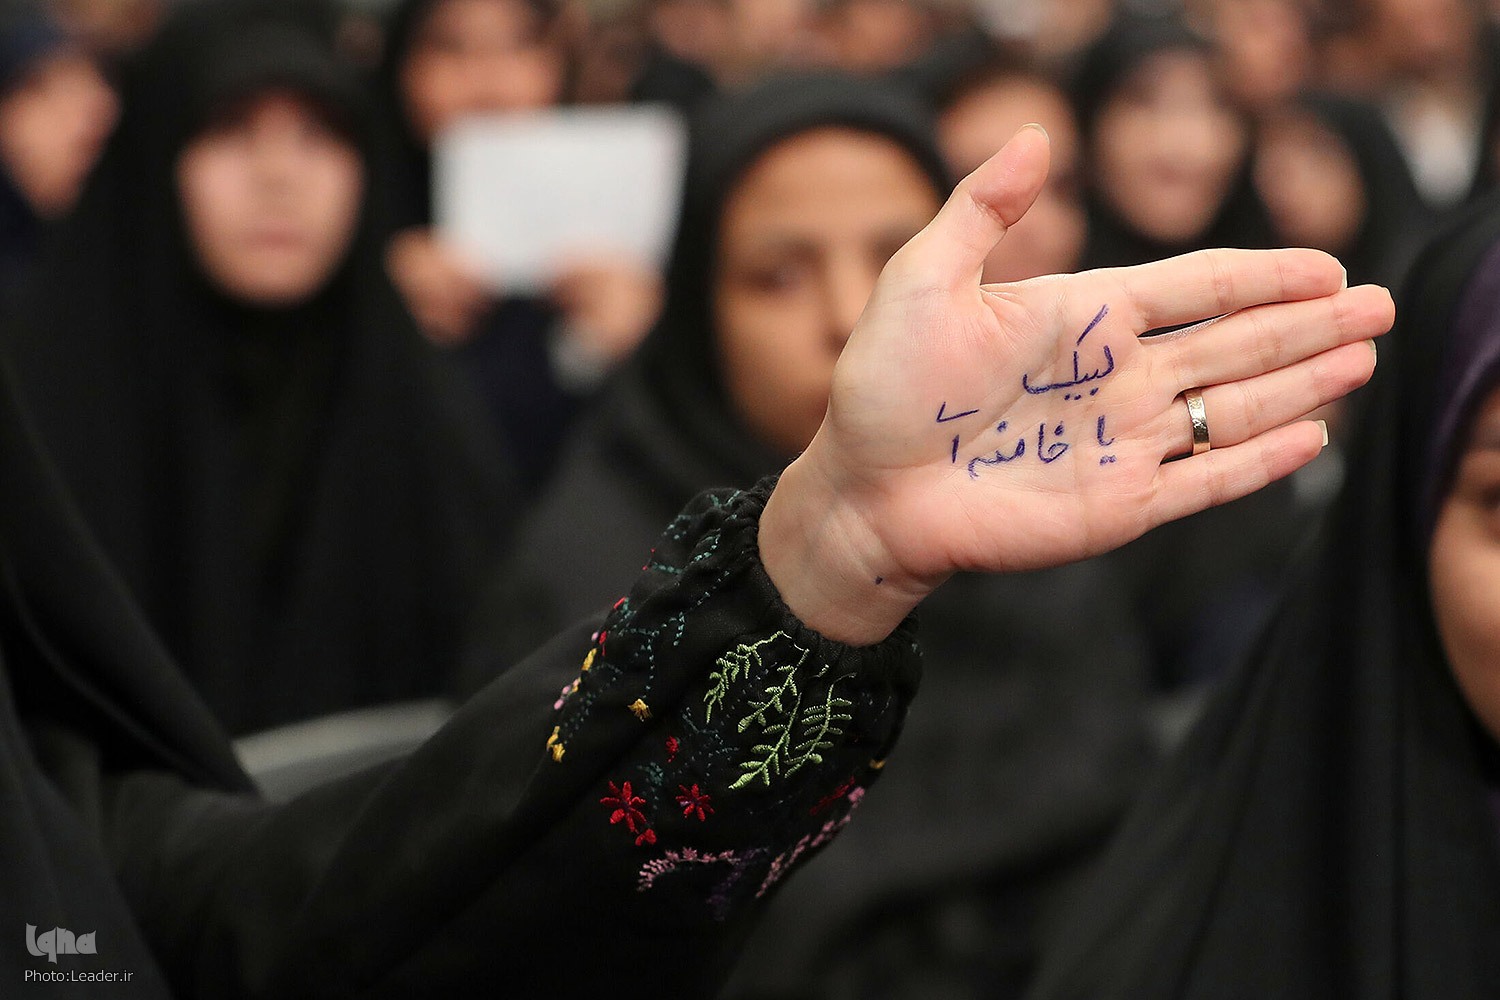 لبیک
یا خامنه ای
Iqna
Photo:Leader.ir